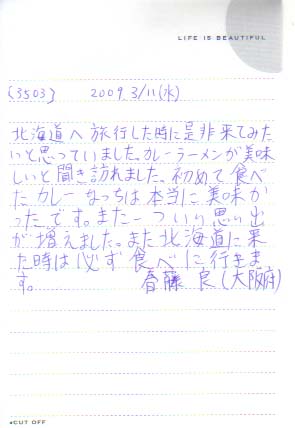 LIFE IS BEAUTIFUL
(3503) 2009. 3/11(水)
北海道へ旅行した時に是非来てみた
いと思っていました。カレーラーメンが美味
しいと聞き訪れました。初めて食べ
た カレー なっちは 本当に美味か
ったです。また一つ いい思い出
が増えました。また北海道に来
た時は必ず食べに行きま
す。 春藤 良(大阪府)
CUT OFF